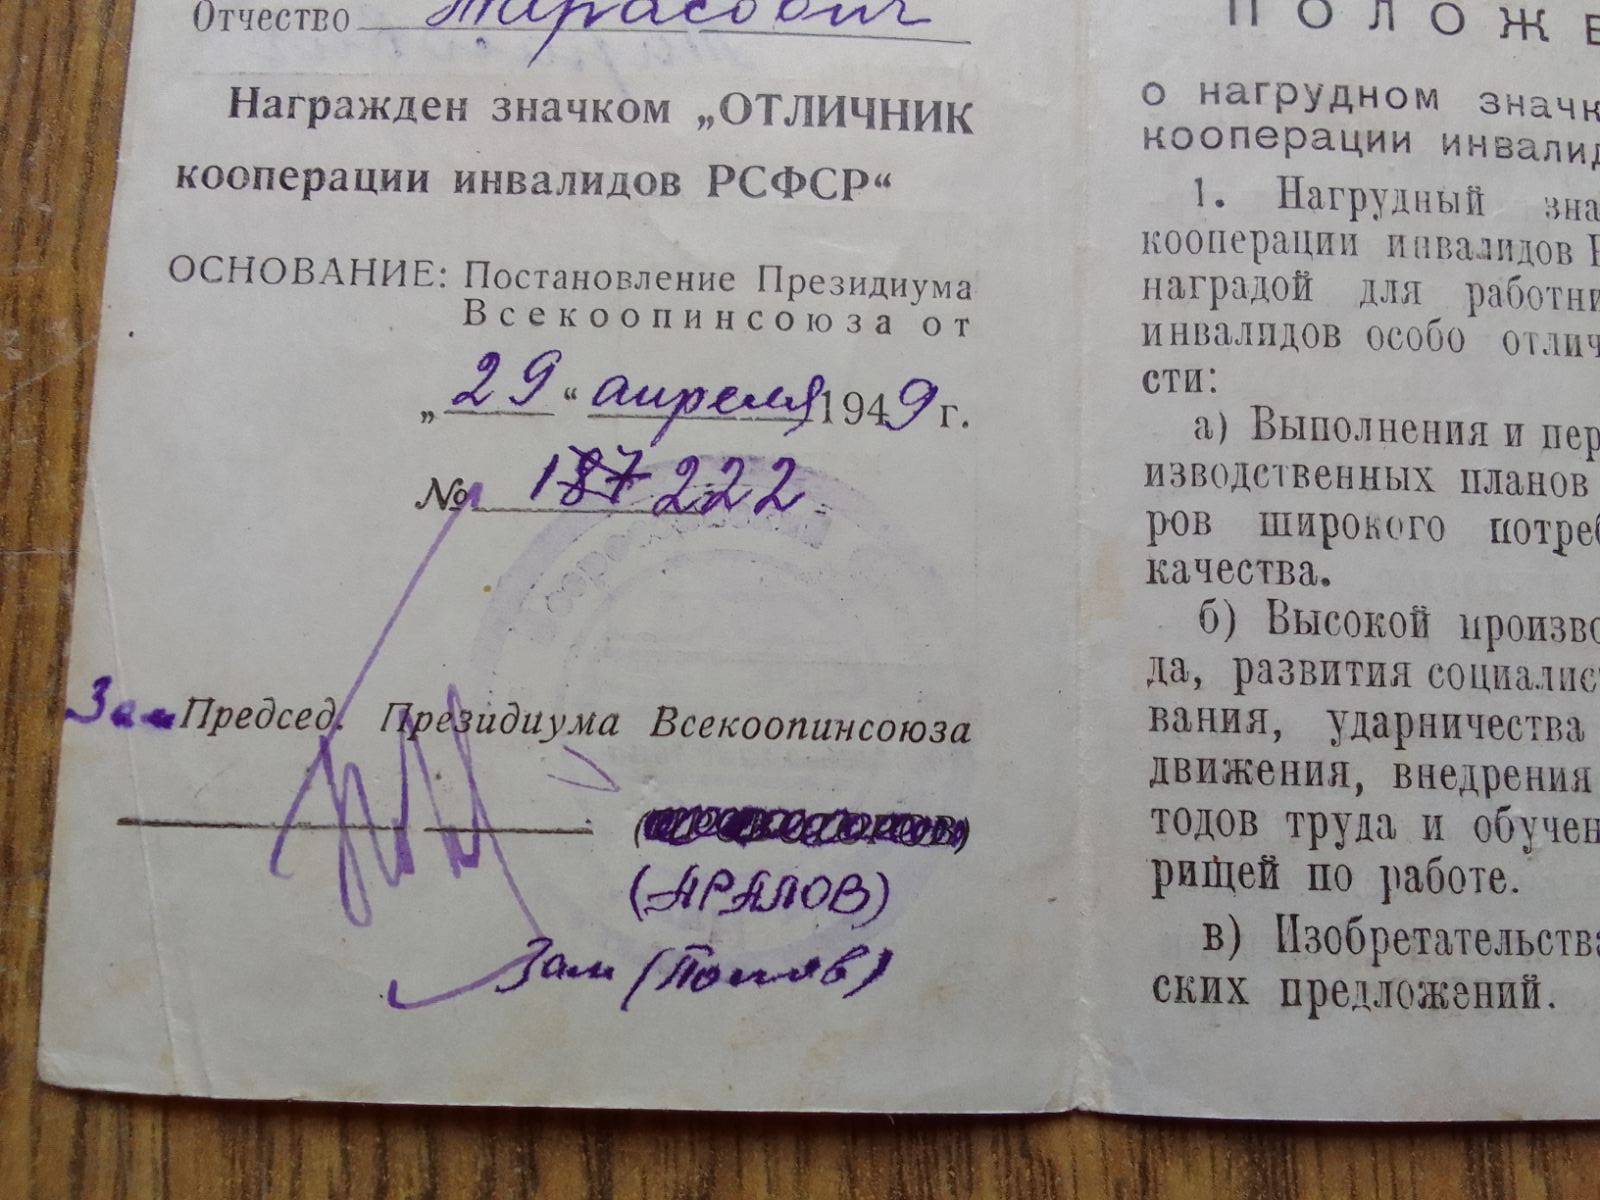 Отчество Тарасович
Награжден значком „ОТЛИЧНИК
кооперации инвалидов РСФСР“
ОСНОВАНИЕ: Постановление Президиума
Всекоопинсоюза от
„29“ апреля 1949 г.
№ 187 222
Зам Председ. Президиума Всекоопинсоюза
(АРАЛОВ)
Зам (
ПОЛОЖЕ
о нагрудном значк
кооперации инвалид
1. Нагрудный зна
кооперации инвалидов Р
наградой для работни
инвалидов особо отлич
сти:
а) Выполнения и пер
изводственных планов
ров широкого потреб
качества.
б) Высокой произво
да, развития социалист
вания, ударничества
движения, внедрения
тодов труда и обучен
рищей по работе.
в) Изобретательства
ских предложений.